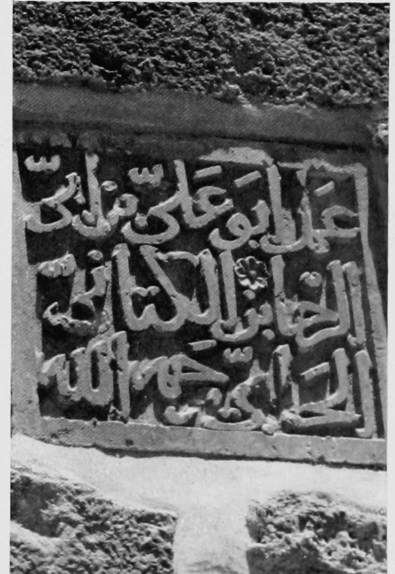 عمل ابو علي بن ابي
الرخا بن الكتاني
الحلبي رحمه الله